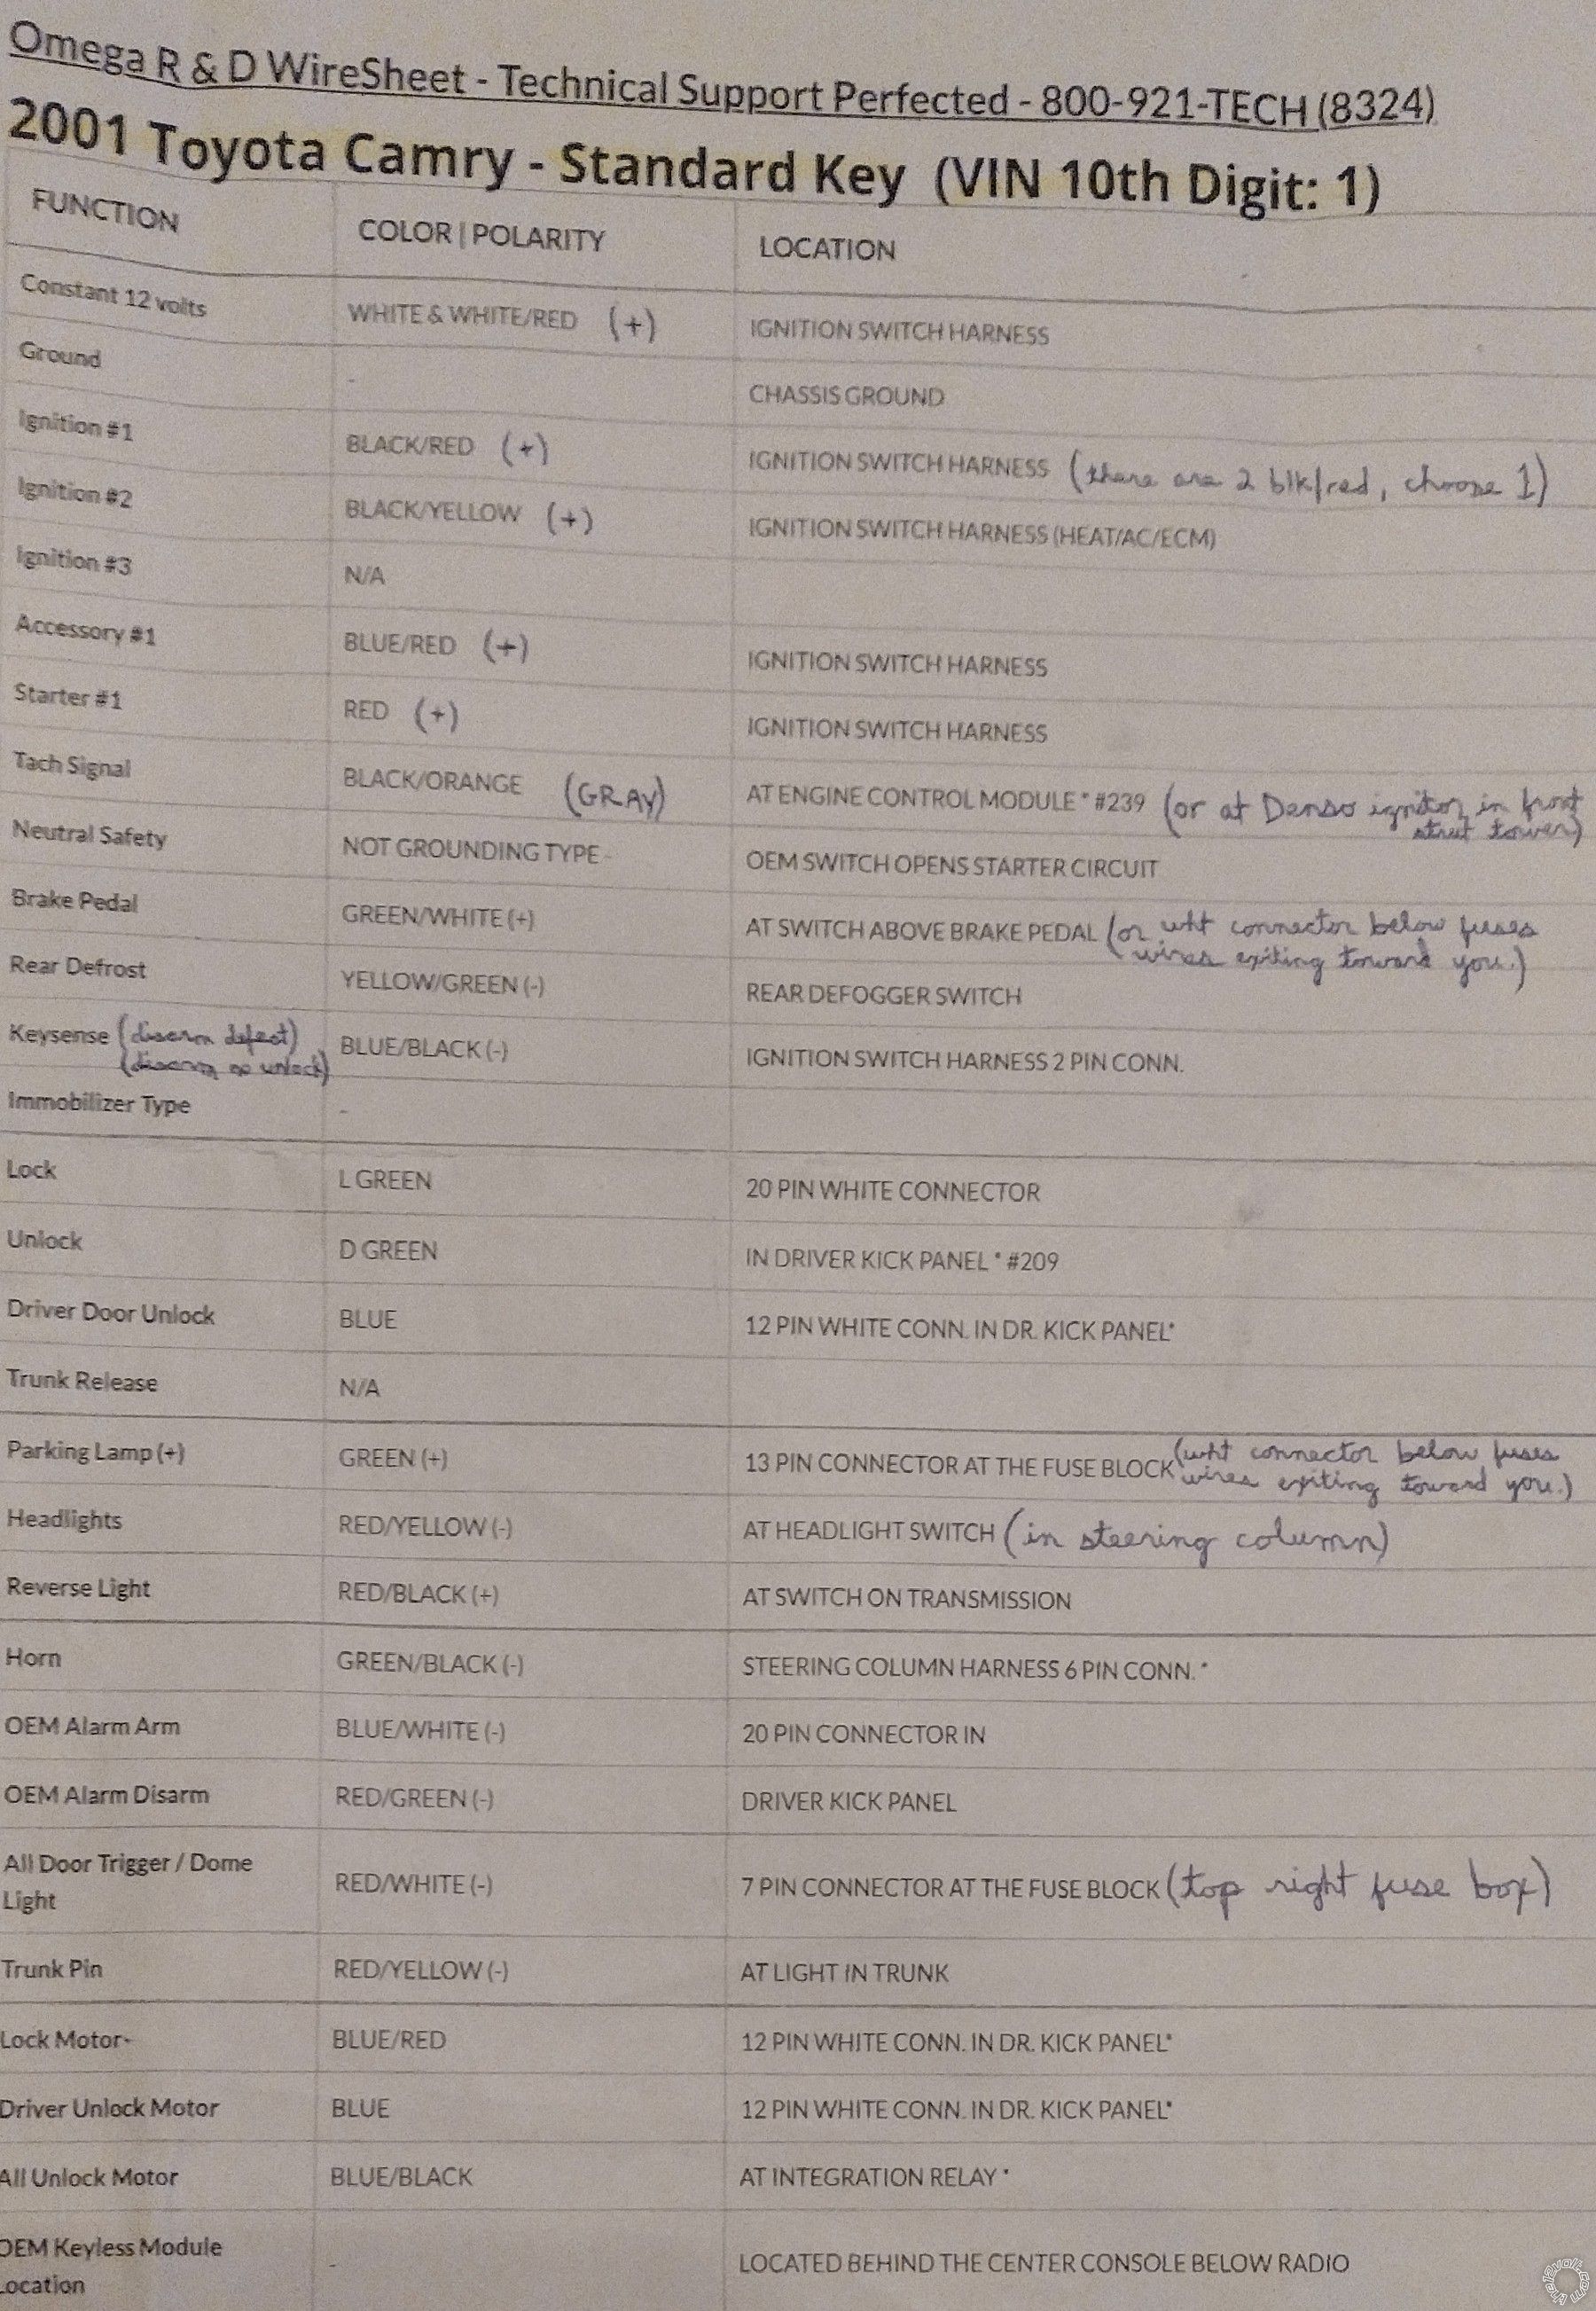 Omega R & D WireSheet - Technical Support Perfected - 800-921-TECH (8324)
2001 Toyota Camry - Standard Key (VIN 10th Digit: 1)
FUNCTION COLOR | POLARITY LOCATION
Constant 12 volts WHITE & WHITE/RED (+) IGNITION SWITCH HARNESS
Ground - CHASSIS GROUND
Ignition #1 BLACK/RED (+) IGNITION SWITCH HARNESS (there are 2 blk/red, choose 1)
Ignition #2 BLACK/YELLOW (+) IGNITION SWITCH HARNESS (HEAT/AC/ECM)
Ignition #3 N/A
Accessory #1 BLUE/RED (+) IGNITION SWITCH HARNESS
Starter #1 RED (+) IGNITION SWITCH HARNESS
Tach Signal BLACK/ORANGE (GRAY) AT ENGINE CONTROL MODULE * #239 (or at Denso ignitor in front
strut tower)
Neutral Safety NOT GROUNDING TYPE - OEM SWITCH OPENS STARTER CIRCUIT
Brake Pedal GREEN/WHITE (+) AT SWITCH ABOVE BRAKE PEDAL (or wht connector below fuses
wires exiting toward you.)
Rear Defrost YELLOW/GREEN (-) REAR DEFOGGER SWITCH
Keysense (disarm defeat) BLUE/BLACK (-) IGNITION SWITCH HARNESS 2 PIN CONN.
(disarm no unlock)
Immobilizer Type -
Lock L GREEN 20 PIN WHITE CONNECTOR
Unlock D GREEN IN DRIVER KICK PANEL * #209
Driver Door Unlock BLUE 12 PIN WHITE CONN. IN DR. KICK PANEL*
Trunk Release N/A
Parking Lamp (+) GREEN (+) 13 PIN CONNECTOR AT THE FUSE BLOCK (wht connector below fuses
wires exiting toward you.)
Headlights RED/YELLOW (-) AT HEADLIGHT SWITCH (in steering column)
Reverse Light RED/BLACK (+) AT SWITCH ON TRANSMISSION
Horn GREEN/BLACK (-) STEERING COLUMN HARNESS 6 PIN CONN. *
OEM Alarm Arm BLUE/WHITE (-) 20 PIN CONNECTOR IN
OEM Alarm Disarm RED/GREEN (-) DRIVER KICK PANEL
All Door Trigger / Dome
Light RED/WHITE (-) 7 PIN CONNECTOR AT THE FUSE BLOCK (top right fuse box)
Trunk Pin RED/YELLOW (-) AT LIGHT IN TRUNK
Lock Motor- BLUE/RED 12 PIN WHITE CONN. IN DR. KICK PANEL*
Driver Unlock Motor BLUE 12 PIN WHITE CONN. IN DR. KICK PANEL*
All Unlock Motor BLUE/BLACK AT INTEGRATION RELAY *
OEM Keyless Module
Location - LOCATED BEHIND THE CENTER CONSOLE BELOW RADIO
the12volt.com